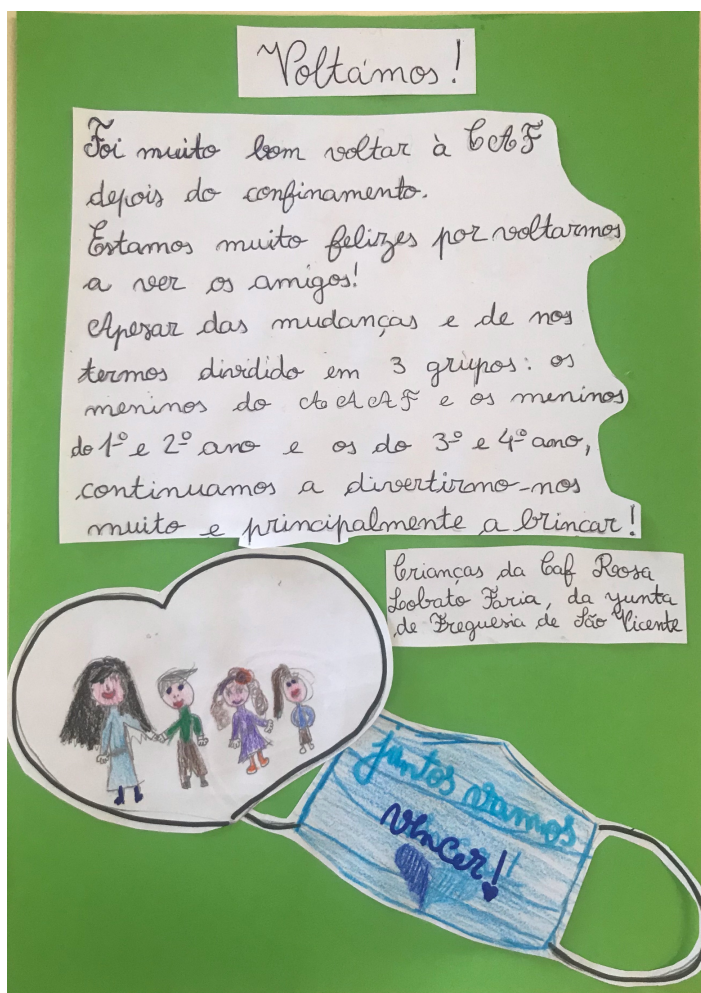 Voltámos!
Foi muito bom voltar à CAF
depois do confinamento.
Estamos muito felizes por voltarmos
a ver os amigos!
Apesar das mudanças e de nos
termos dividido em 3 grupos: os
meninos do AAAF e os meninos
do 1º e 2º ano e os do 3º e 4º ano,
continuamos a divertirmo-nos
muito e principalmente a brincar!
Crianças da Caf Rosa
Lobato Faria, da yunta
de Freguesia de São Vicente
juntos vamos
vencer!